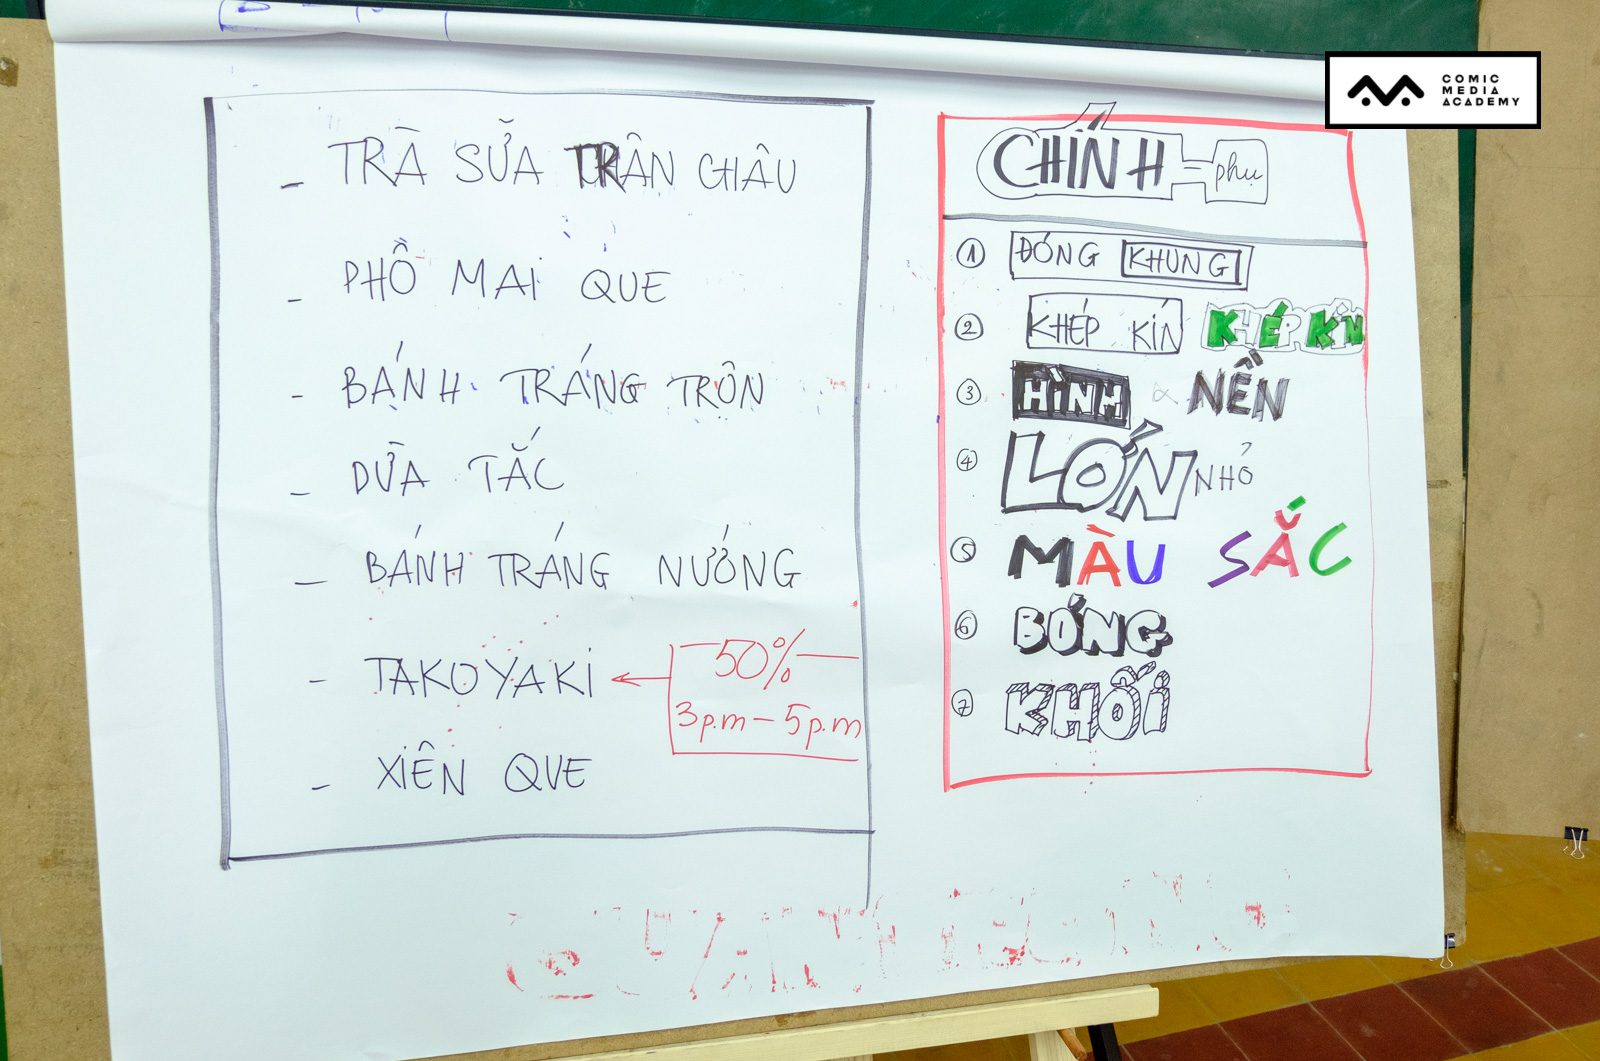 COMIC
MEDIA
ACADEMY
- TRÀ SỮA TRÂN CHÂU
- PHÔ MAI QUE
- BÁNH TRÁNG TRỘN
- DỪA TẮC
- BÁNH TRÁNG NƯỚNG
- TAKOYAKI
50%
3p.m - 5p.m
- XIÊN QUE
CHÍNH phụ
1 ĐÓNG KHUNG
2 KHÉP KÍN KHÉP KÍN
3 HÌNH NỀN
4 LỚN NHỎ
5 MÀU SẮC
6 BÓNG
7 KHỐI